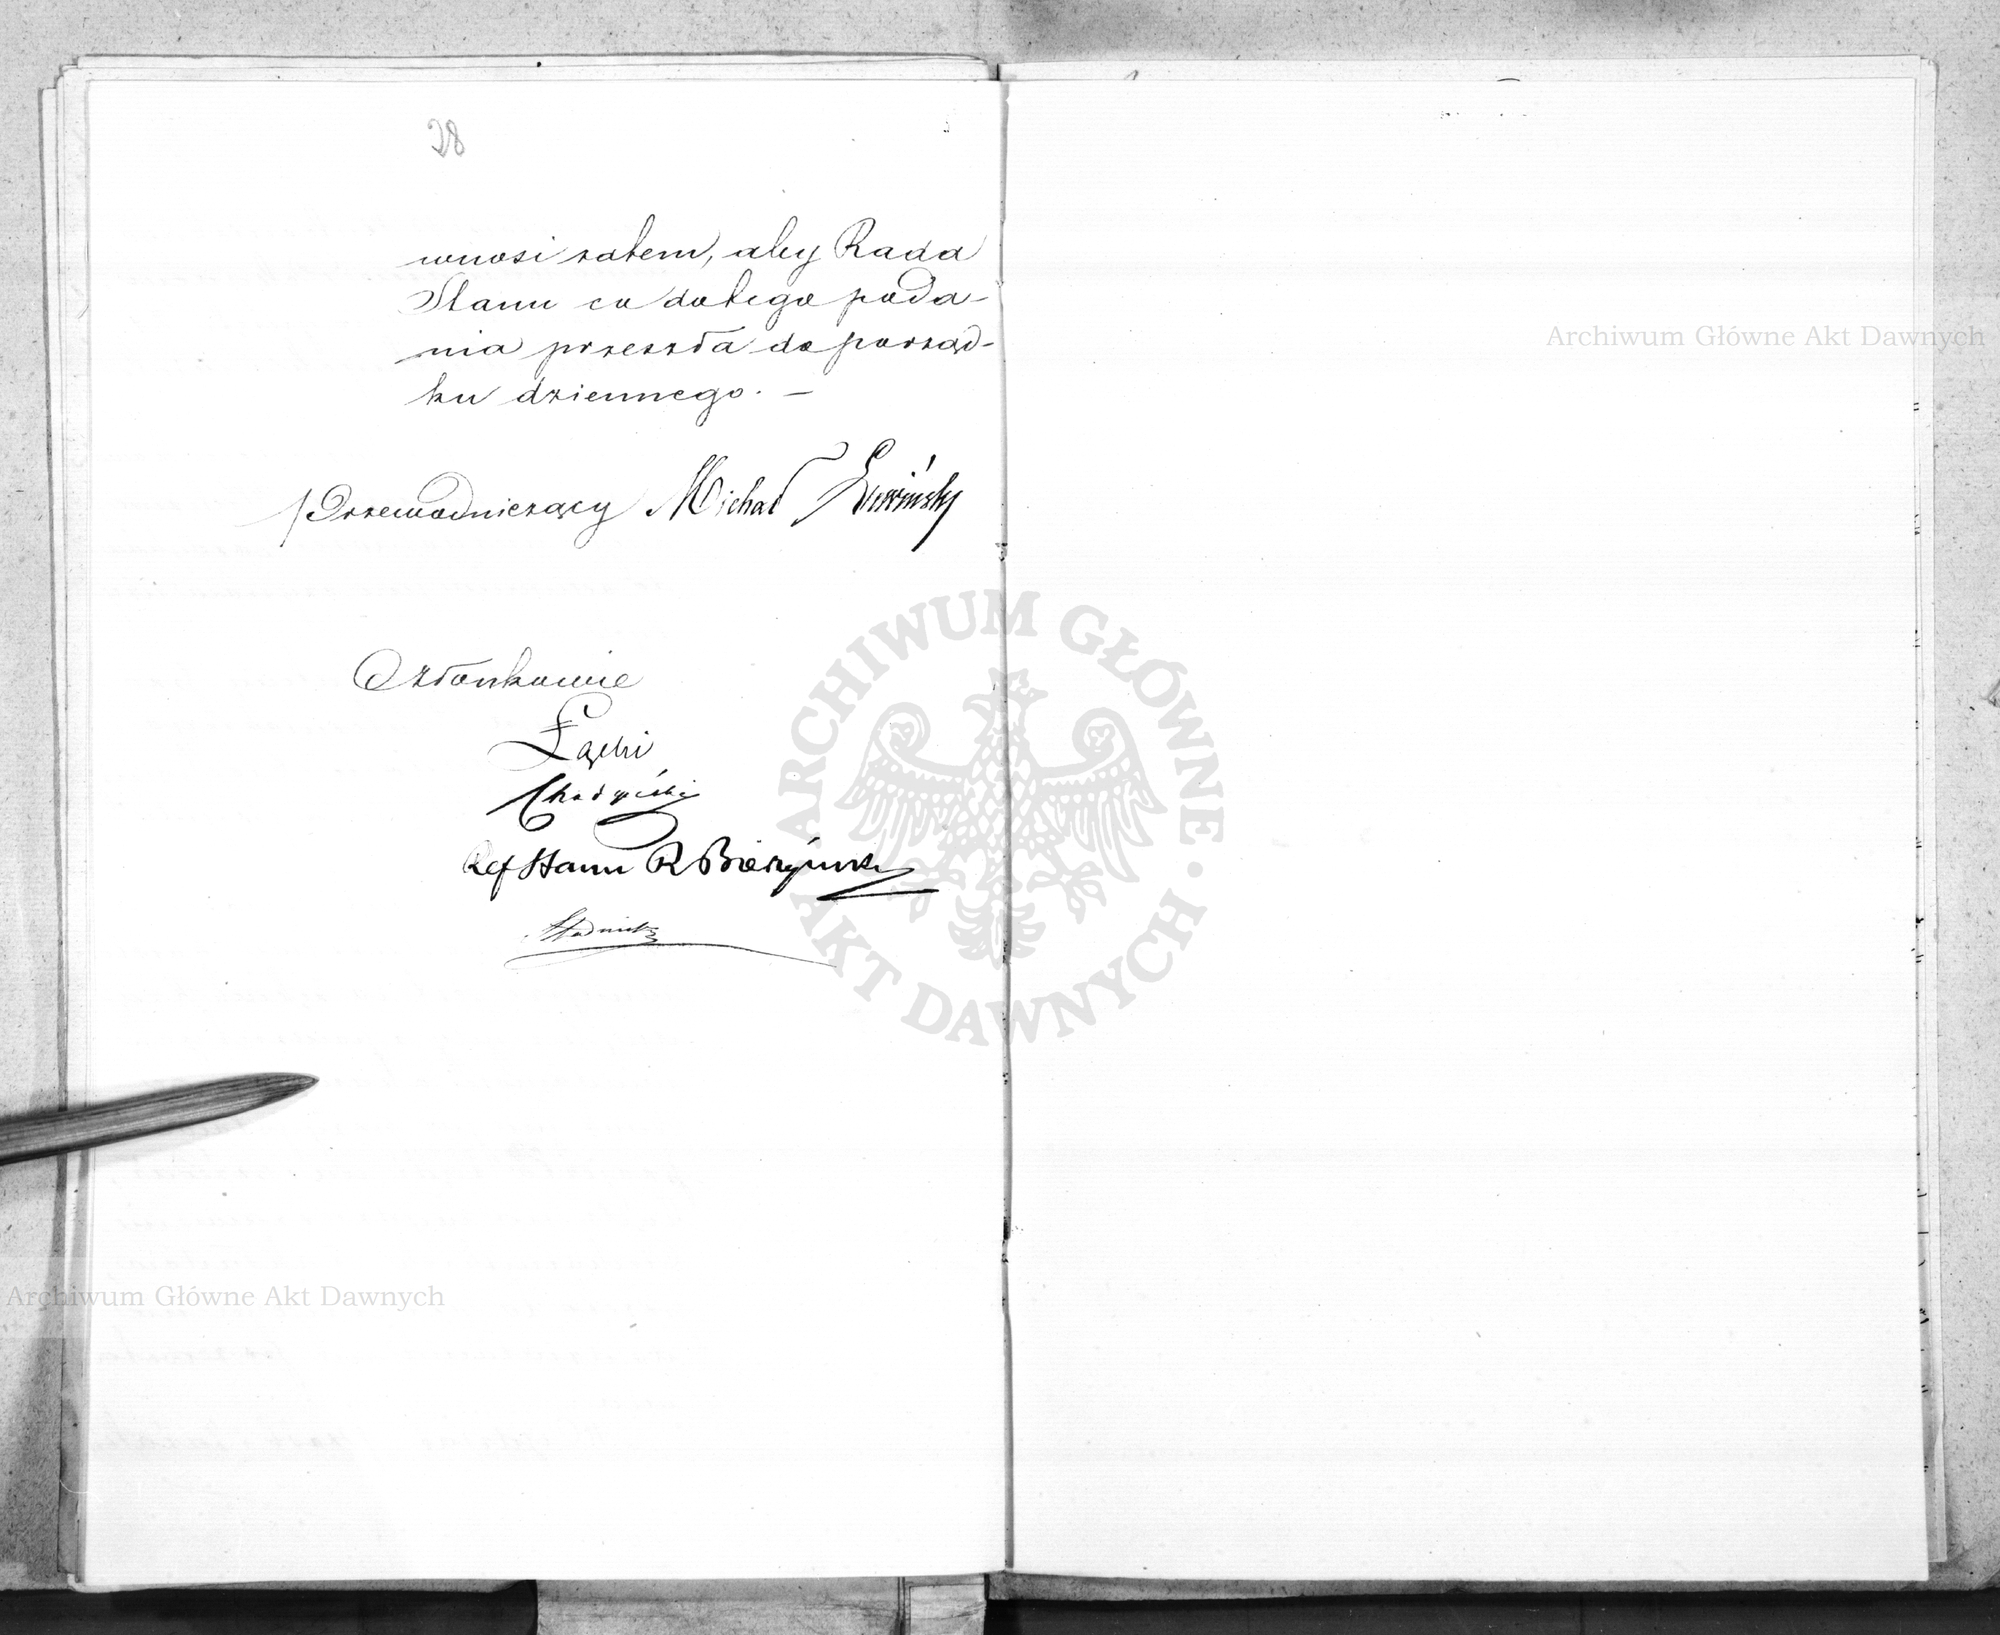 28
wnosi zatem, aby Rada
Stanu co do tego poda-
nia przeszła do porząd-
ku dziennego. —
Przewodniczący Michał
Członkowie
Łącki
Ref Stanu R Bierzyński
Archiwum Główne Akt Dawnych
ARCHIWUM GŁÓWNE AKT DAWNYCH
Archiwum Główne Akt Dawnych